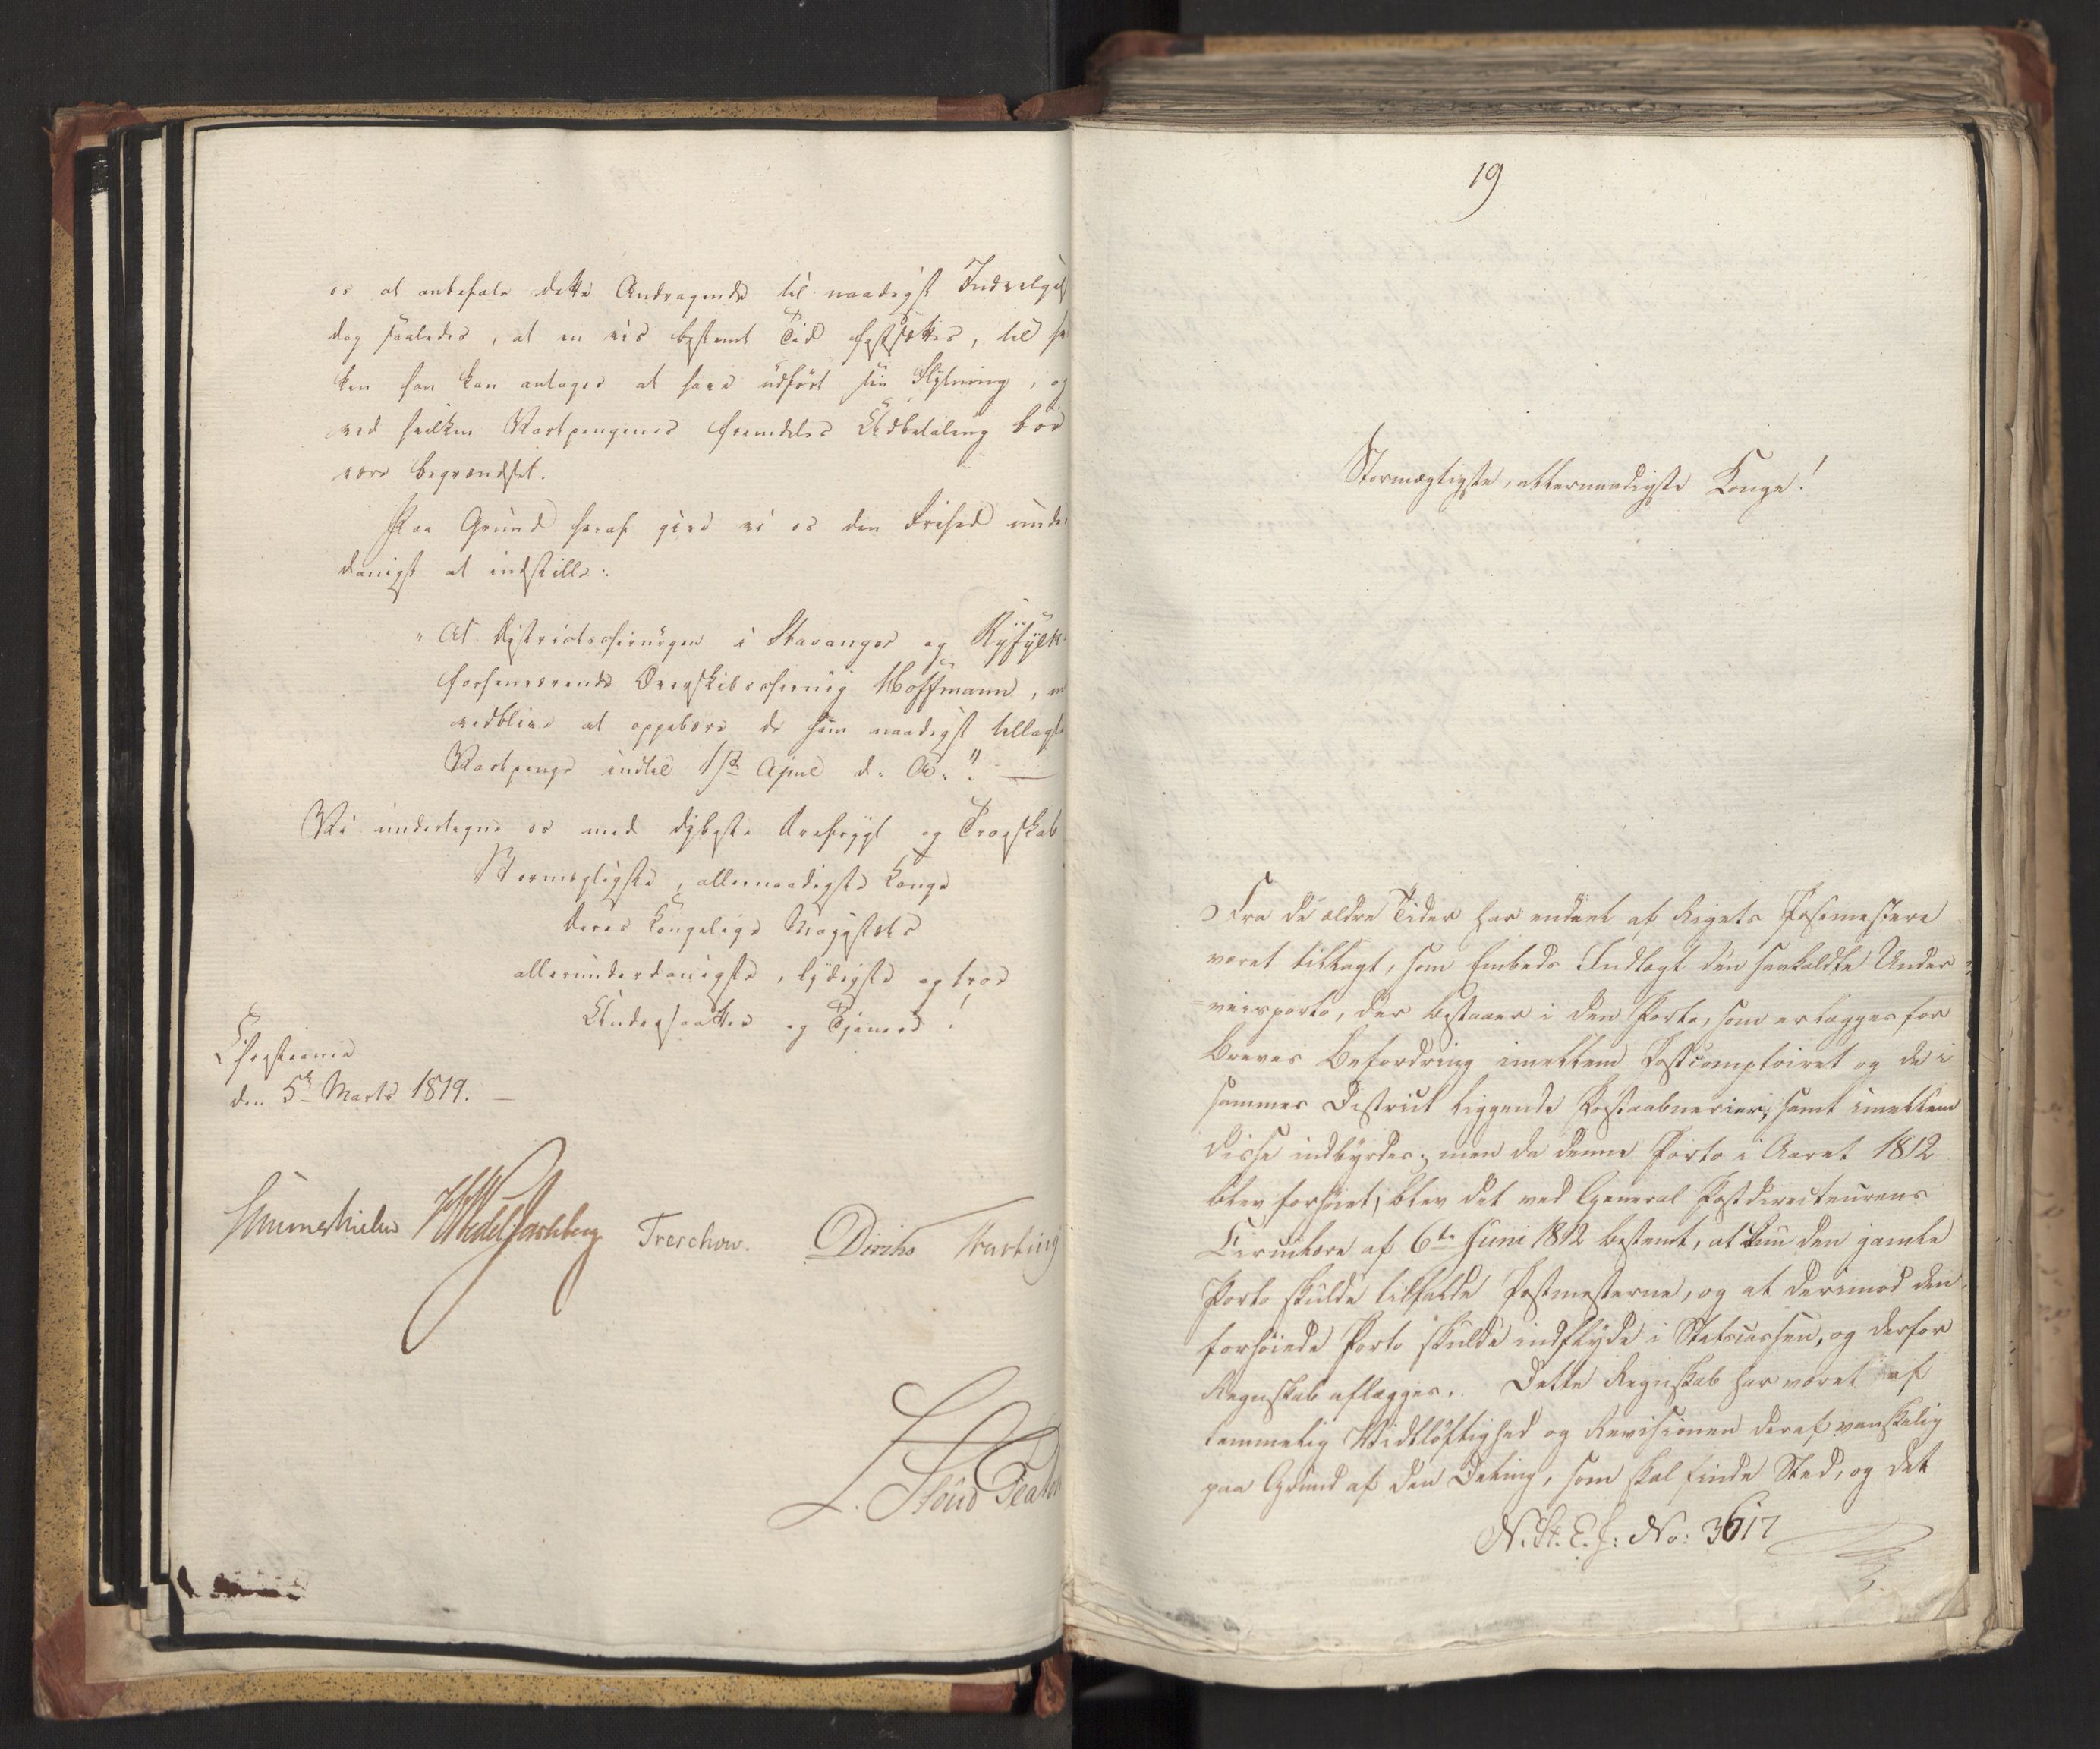 os at anbefale dette Andragende til naadigst Indvilgels
dog saaledes, at en vis bestemt Tid fastsættes, til h
ken han kan antages at have udført sin Flytning, og
ved hvilken Vartpengenes fremdeles Udbetaling bör
være begrændset.
Paa Grund heraf give vi os den Frihed under
danigst at indstille:
"At Districtschirurgen i Stavanger og Ryfylke
forhenværende Overskibschirurg Hoffmann, m
vedblive at oppebære de ham naadigst tillagte
Vartpenge indtil 1ste April d. A." —
Vi undertegne os med dybeste Ærefrygt og Troeskab
Stormægtigste, allernaadigste Konge
Deres Kongelige Majestæts
allerunderdanigste, lydigste og troe
Undersaatter og Tjenere!
Christiania
den 5te Marts 1819. —
Sommerhielm HWedel Jarlsberg Treschow. Diriks Krebting
L. Stoud Platou
19
Stormægtigste, allernaadigste Konge!
Fra de ældre Tider har endeel af Rigets Postmestere
været tillagt, som Embeds Indtægt den saakaldte Under
=veisporto, der bestaaer i den Porto, som erlægges for
Breves Befordring imellem Postcomptoiret og de i
sammes District liggende Postaabnerier, samt imellem
disse indbyrdes; men da denne Porto i Aaret 1812
blev forhöiet, blev det ved General Postdirecteurens
Circulære af 6te Juni 1812 bestemt, at kun den gamle
Porto skulde tilfalde Postmesterne, og at derimod den
forhöiede Porto skulde indflyde i Statscassen, og derfor
Regnskab aflægges. Dette Regnskab har været af
temmelig Vidtlöftighed og Revisionen deraf vanskelig
paa Grund af den Deling, som skal finde Sted, og det
N. St. E. J: No: 3617